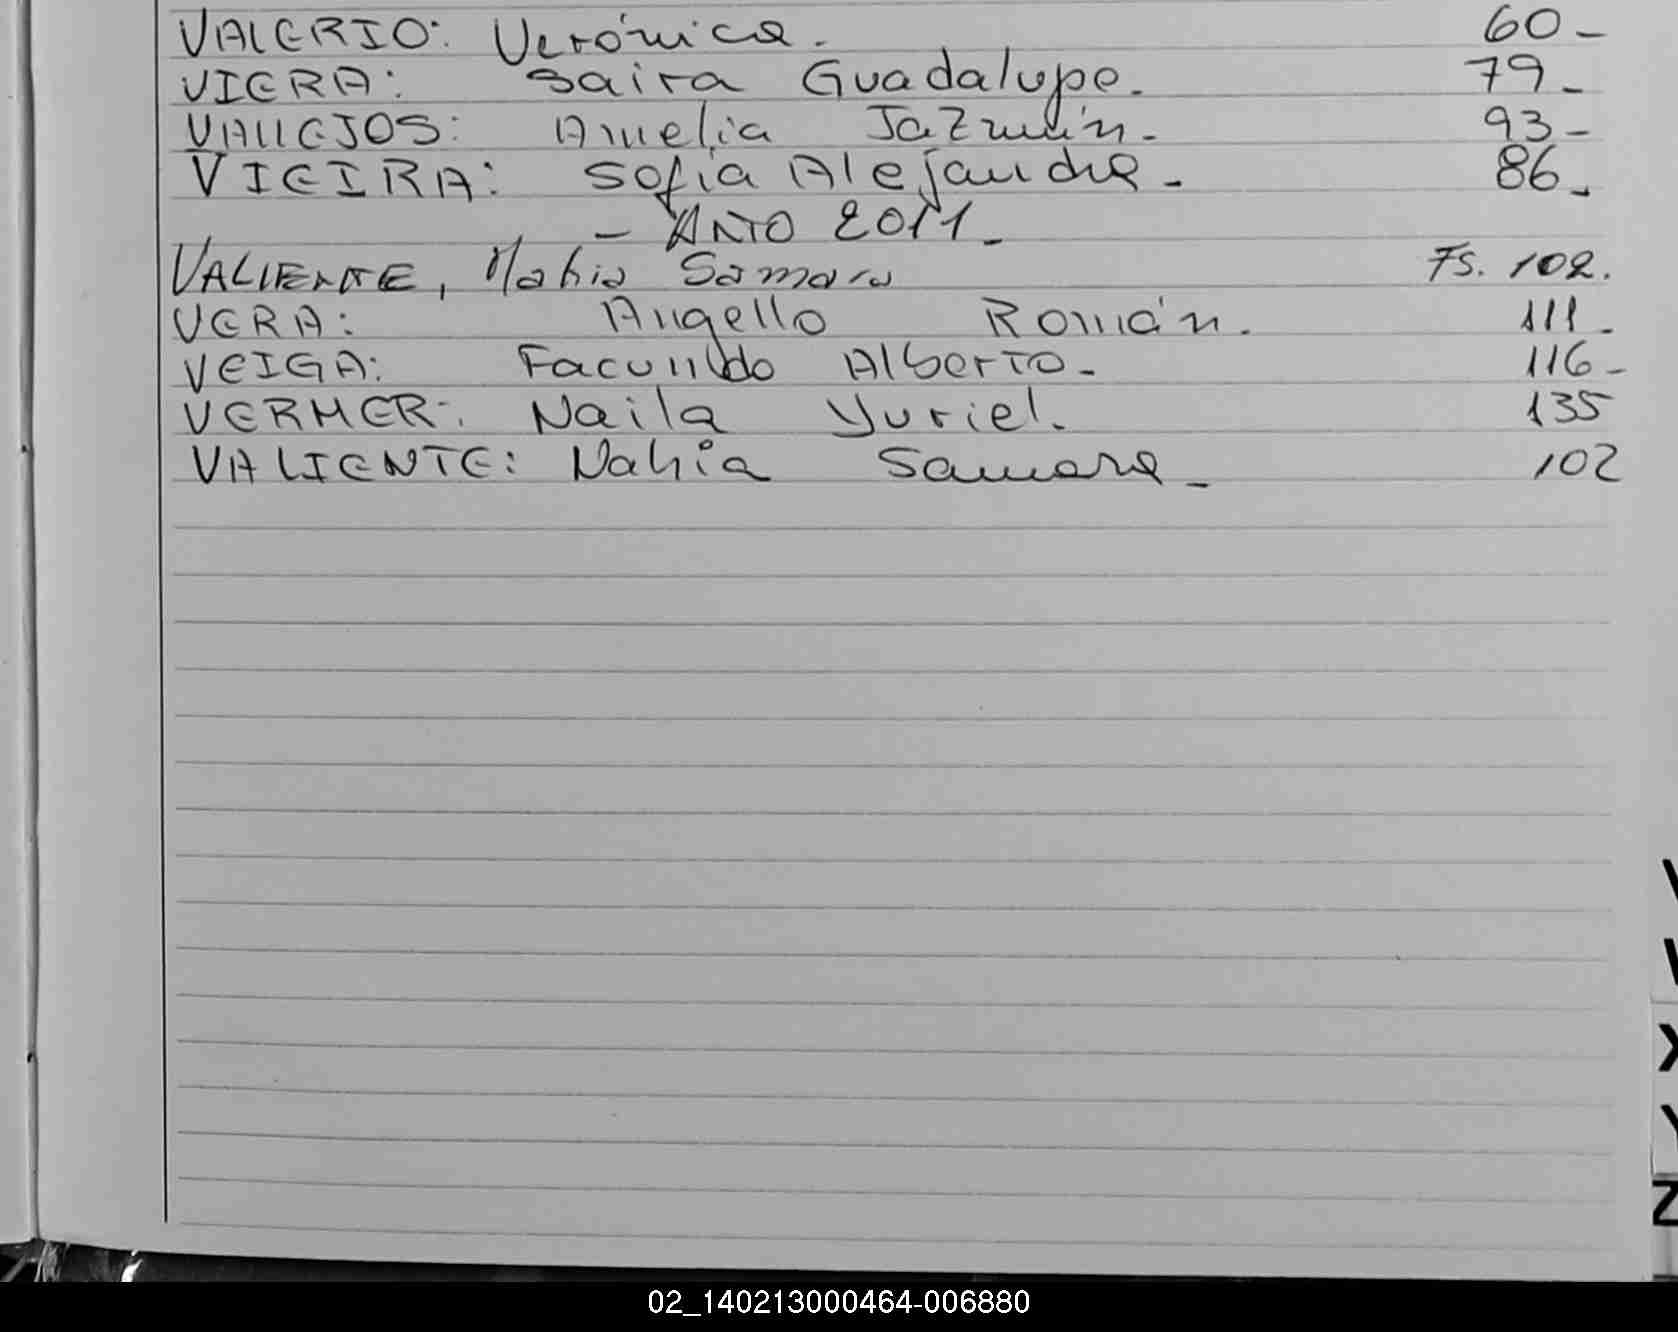 VALERIO: Verónica. 60-
VIERA: Saira Guadalupe. 79-
VALLEJOS: Amelia Jazmín. 93-
VIEIRA: Sofia Alejandra. 86-
- AÑO 2011-
VALIENTE, Nahia Samara Fs. 102.
VERA: Angello Román. 111.
VEIGA: Facundo Alberto. 116-
VERMER: Naila Yuriel. 135
VALIENTE: Nahia Samara- 102
V
V
X
Y
Z
02_140213000464-006880